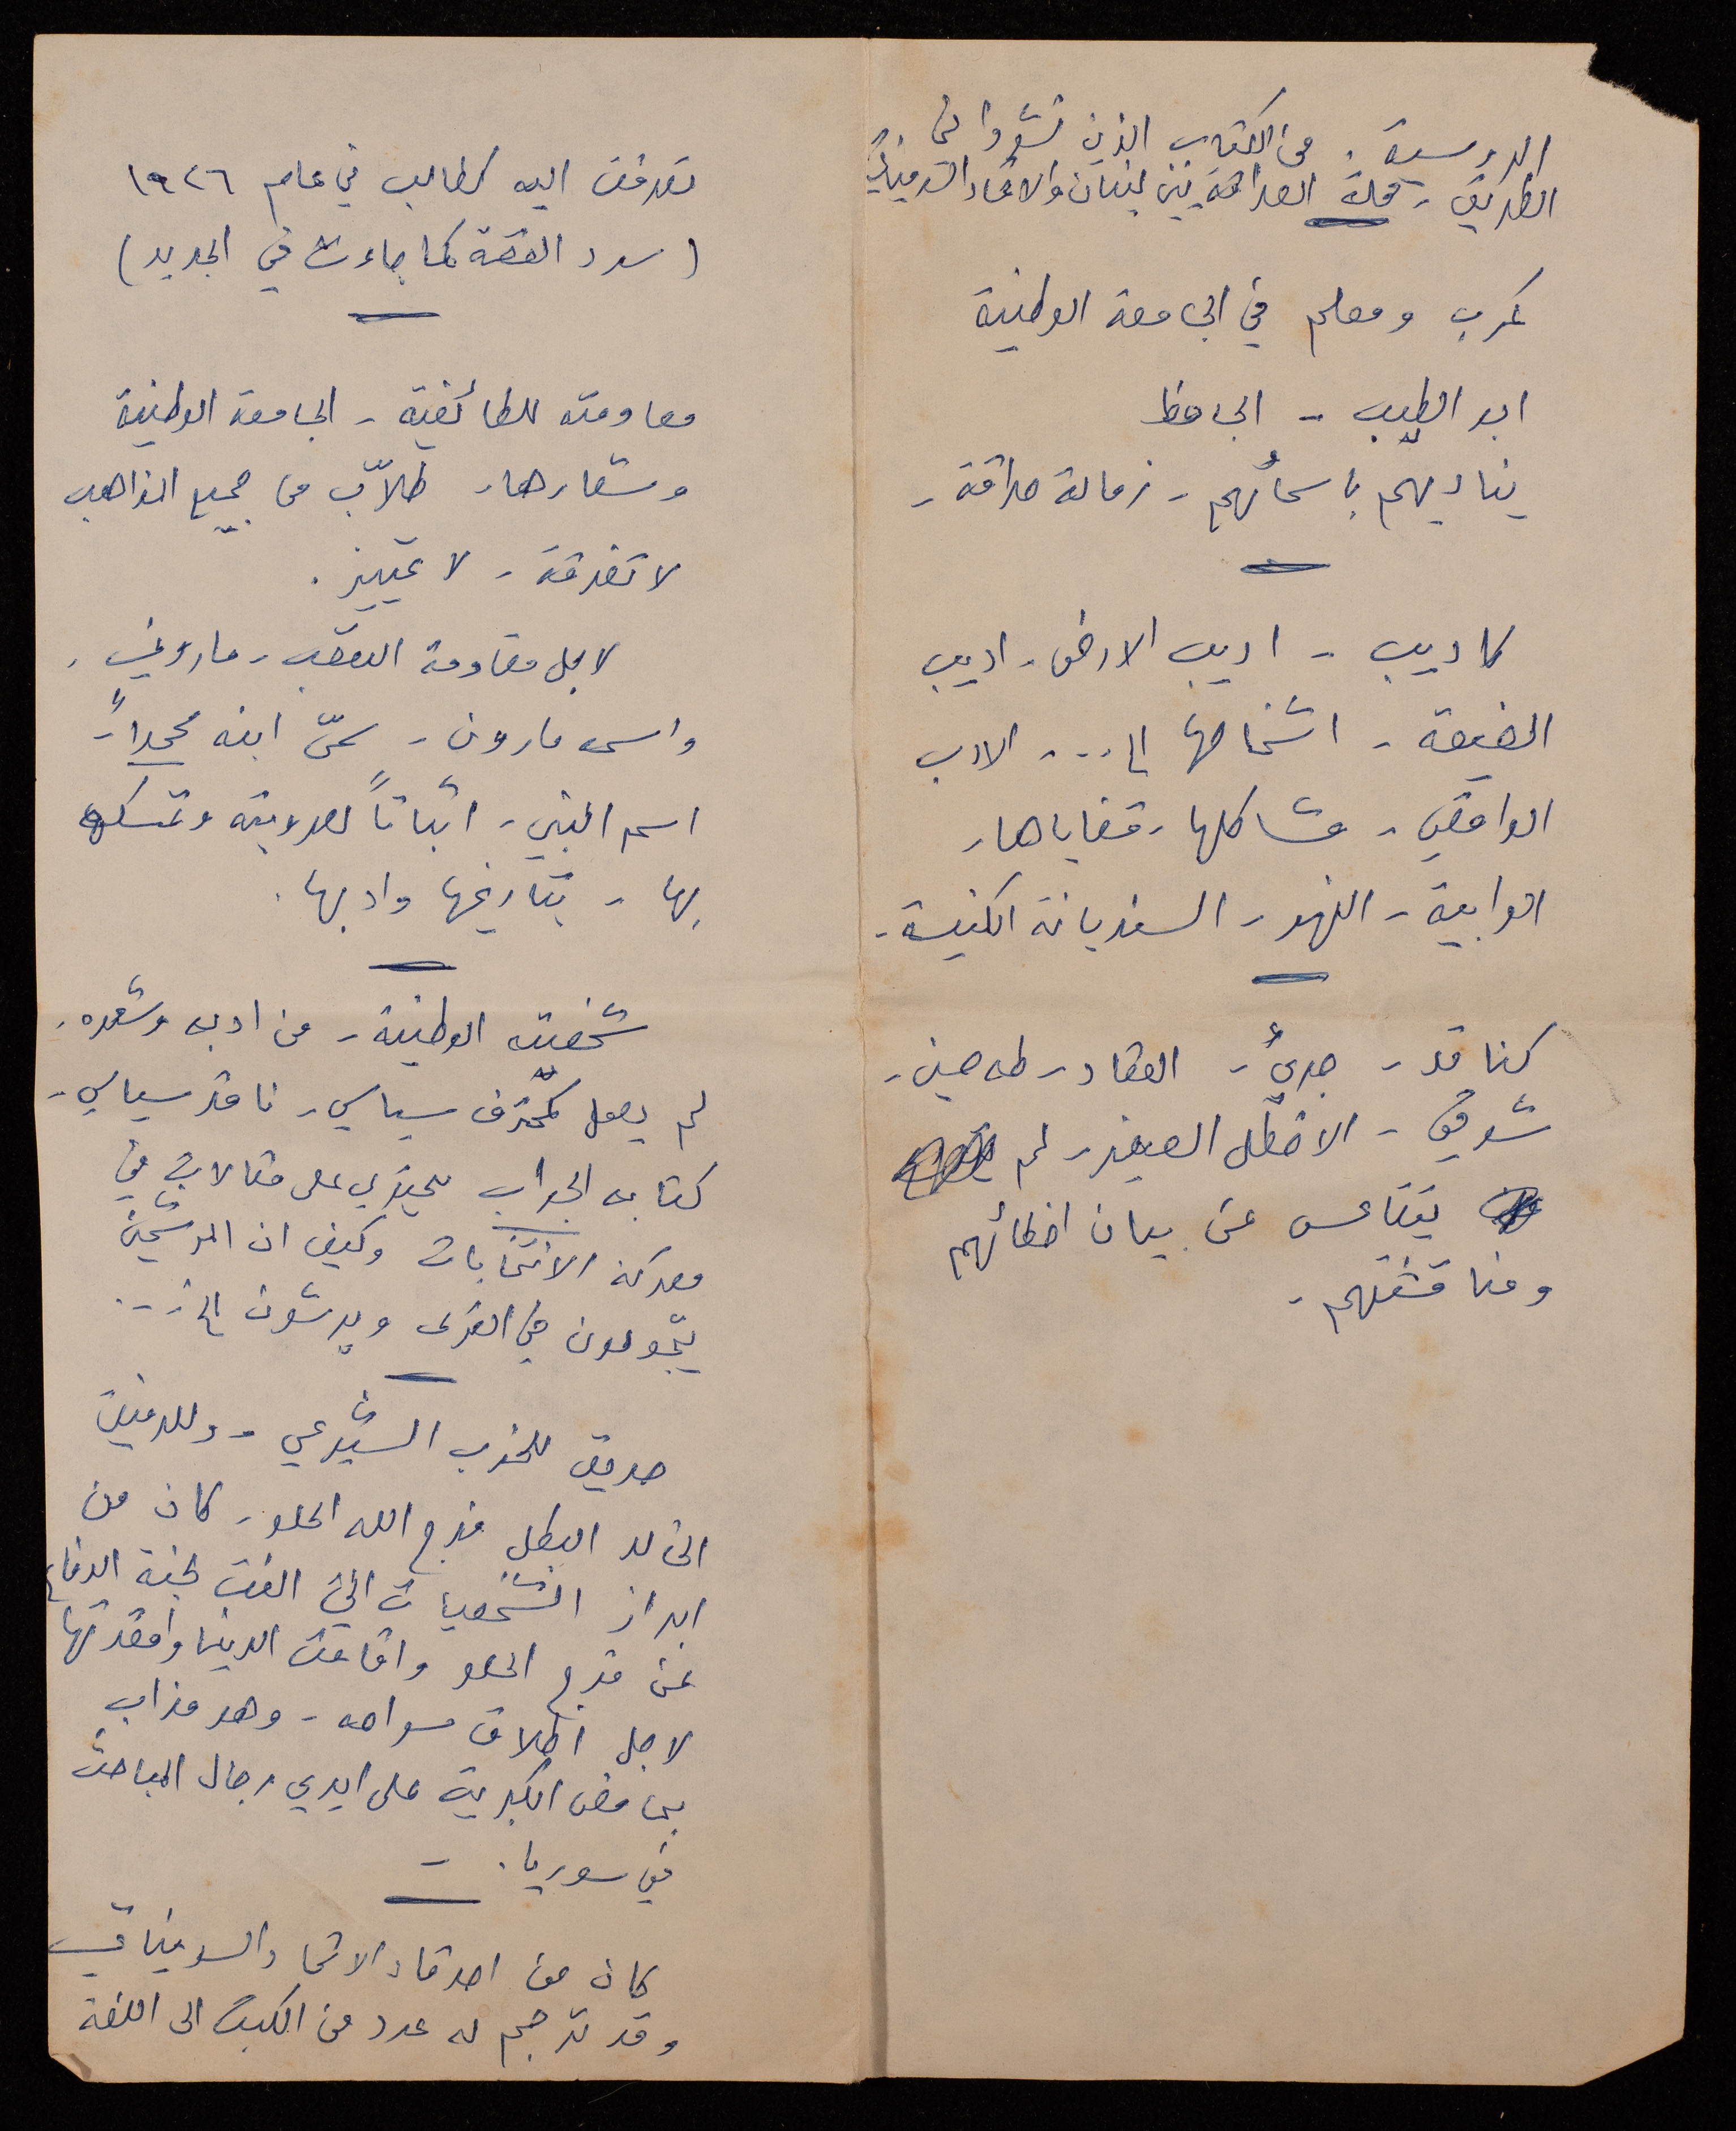 تعرفت اليه كطالب في عام ١٩٢٦
(سرد القصة كما جاءت في الجديد)
مقاومته للطائفية - الجامعة الوطنية
وشعارها - طلاّب من جميع المذاهب
لا تفرقة - لا تمييز .
لاجل مقاومة التعصب - ماروني -
واسمه مارون - سمّى ابنه محمداً -
اسم النبي - اثباتاً لعروبته وتمسكه
بها - بتاريخها وادبها .
شخصيته الوطنية - من ادبه وشعره .
لم يعمل كمحترف سياسي - ناقد سياسي -
كتابه الجراب يحتوي على مقالات في
معركة الانتخابات وكيف ان المرشحين
يتجولون في القرى ويرشون الخ ...
صديق للحزب الشيوعي - وللرفيق
الخالد البطل فرج الله الحلو - كان من
ابراز الشخصيات التي الفت لجنة الدفاع
عن فرج الحلو واقامت الدنيا واقعدتها
لاجل اطلاق سراحه - وهو مذاب
بحامض الكبريت على ايدي رجال المباحث
في سوريا . -
كان من اصدقاء الاتحاد السوفياتي
وقد ترجم له عدد من الكتب الى اللغة
الروسية . من الكتاب الذين نشروا في
الطريق - مجلة الصداقة بين لبنان والاتحاد السوفياتي
كمرب ومعلم في الجامعة الوطنية
ابو الطيب - الجاحظ
يناديهم باسمائهم - زمالة صداقة -
كاديب - اديب الارض - اديب
الضيعة - اشخاصها الخ ... - الادب
الواقعي - مشاكلها - قضاياها -
الرابية - النهر - السنديانة الكنيسة -
كناقد - جريءٌ - العقاد - طه حسين -
شوقي - الاخطل الصغير - لم
يتقاعس عن بيان اخطائهم
ومناقشتهم -